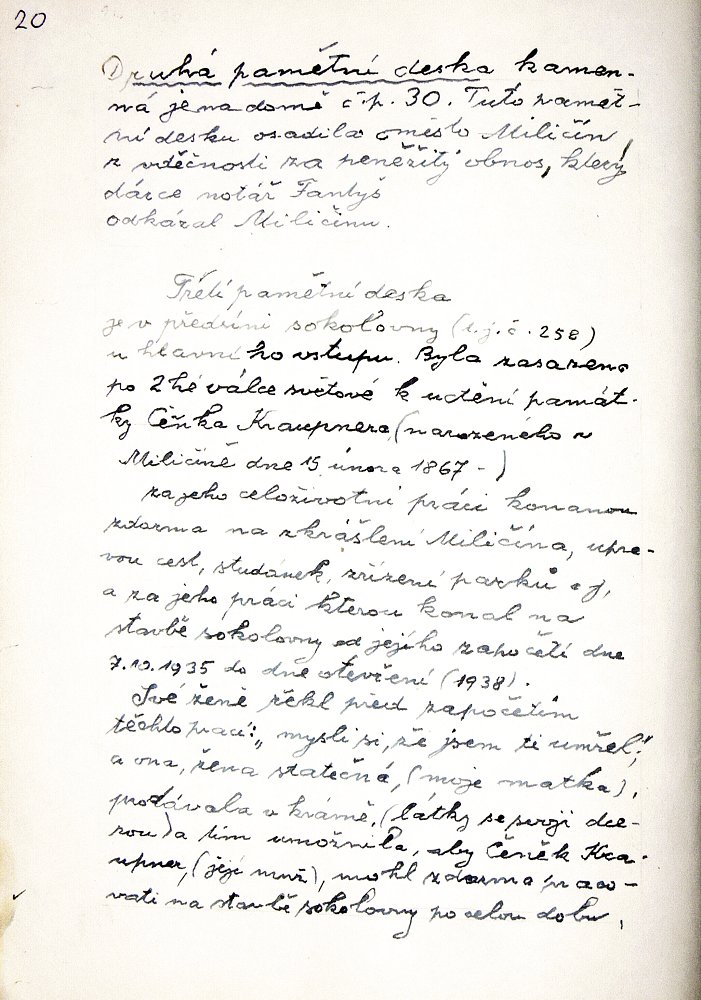 20
Druhá pamětní deska kamen-
ná je na domě č.p. 30. Tuto pamět-
ní desku osadilo město Miličín,
z vděčnosti za peněžitý obnos, který
dárce notář Fantyš
odkázal Miličínu.
Třetí pamětní deska
je v předsíni sokolovny (t.j. č. 258)
u hlavního vstupu. Byla zasazena
po 2hé válce světové k uctění památ-
ky Čeňka Kraupnera, (narozeného v
Miličíně dne 15 února 1867 - )
za jeho celoživotní práci konanou
zdarma na zkrášlení Miličína, upra-
vou cest, studánek, zřízení parků a j,
a za jeho práci kterou konal na
stavbě sokolovny od jejího započetí dne
7.10.1935 do dne otevření (1938).
Své ženě řekl před započetím
těchto prací: „mysli si, že jsem ti umřel",
a ona, žena statečná, (moje matka),
prodávala v krámě, (látky se svojí dce-
rou) a tím umožnila, aby Čeněk Kra-
upner, (její muž), mohl zdarma praco-
vati na stavbě sokolovny po celou dobu,